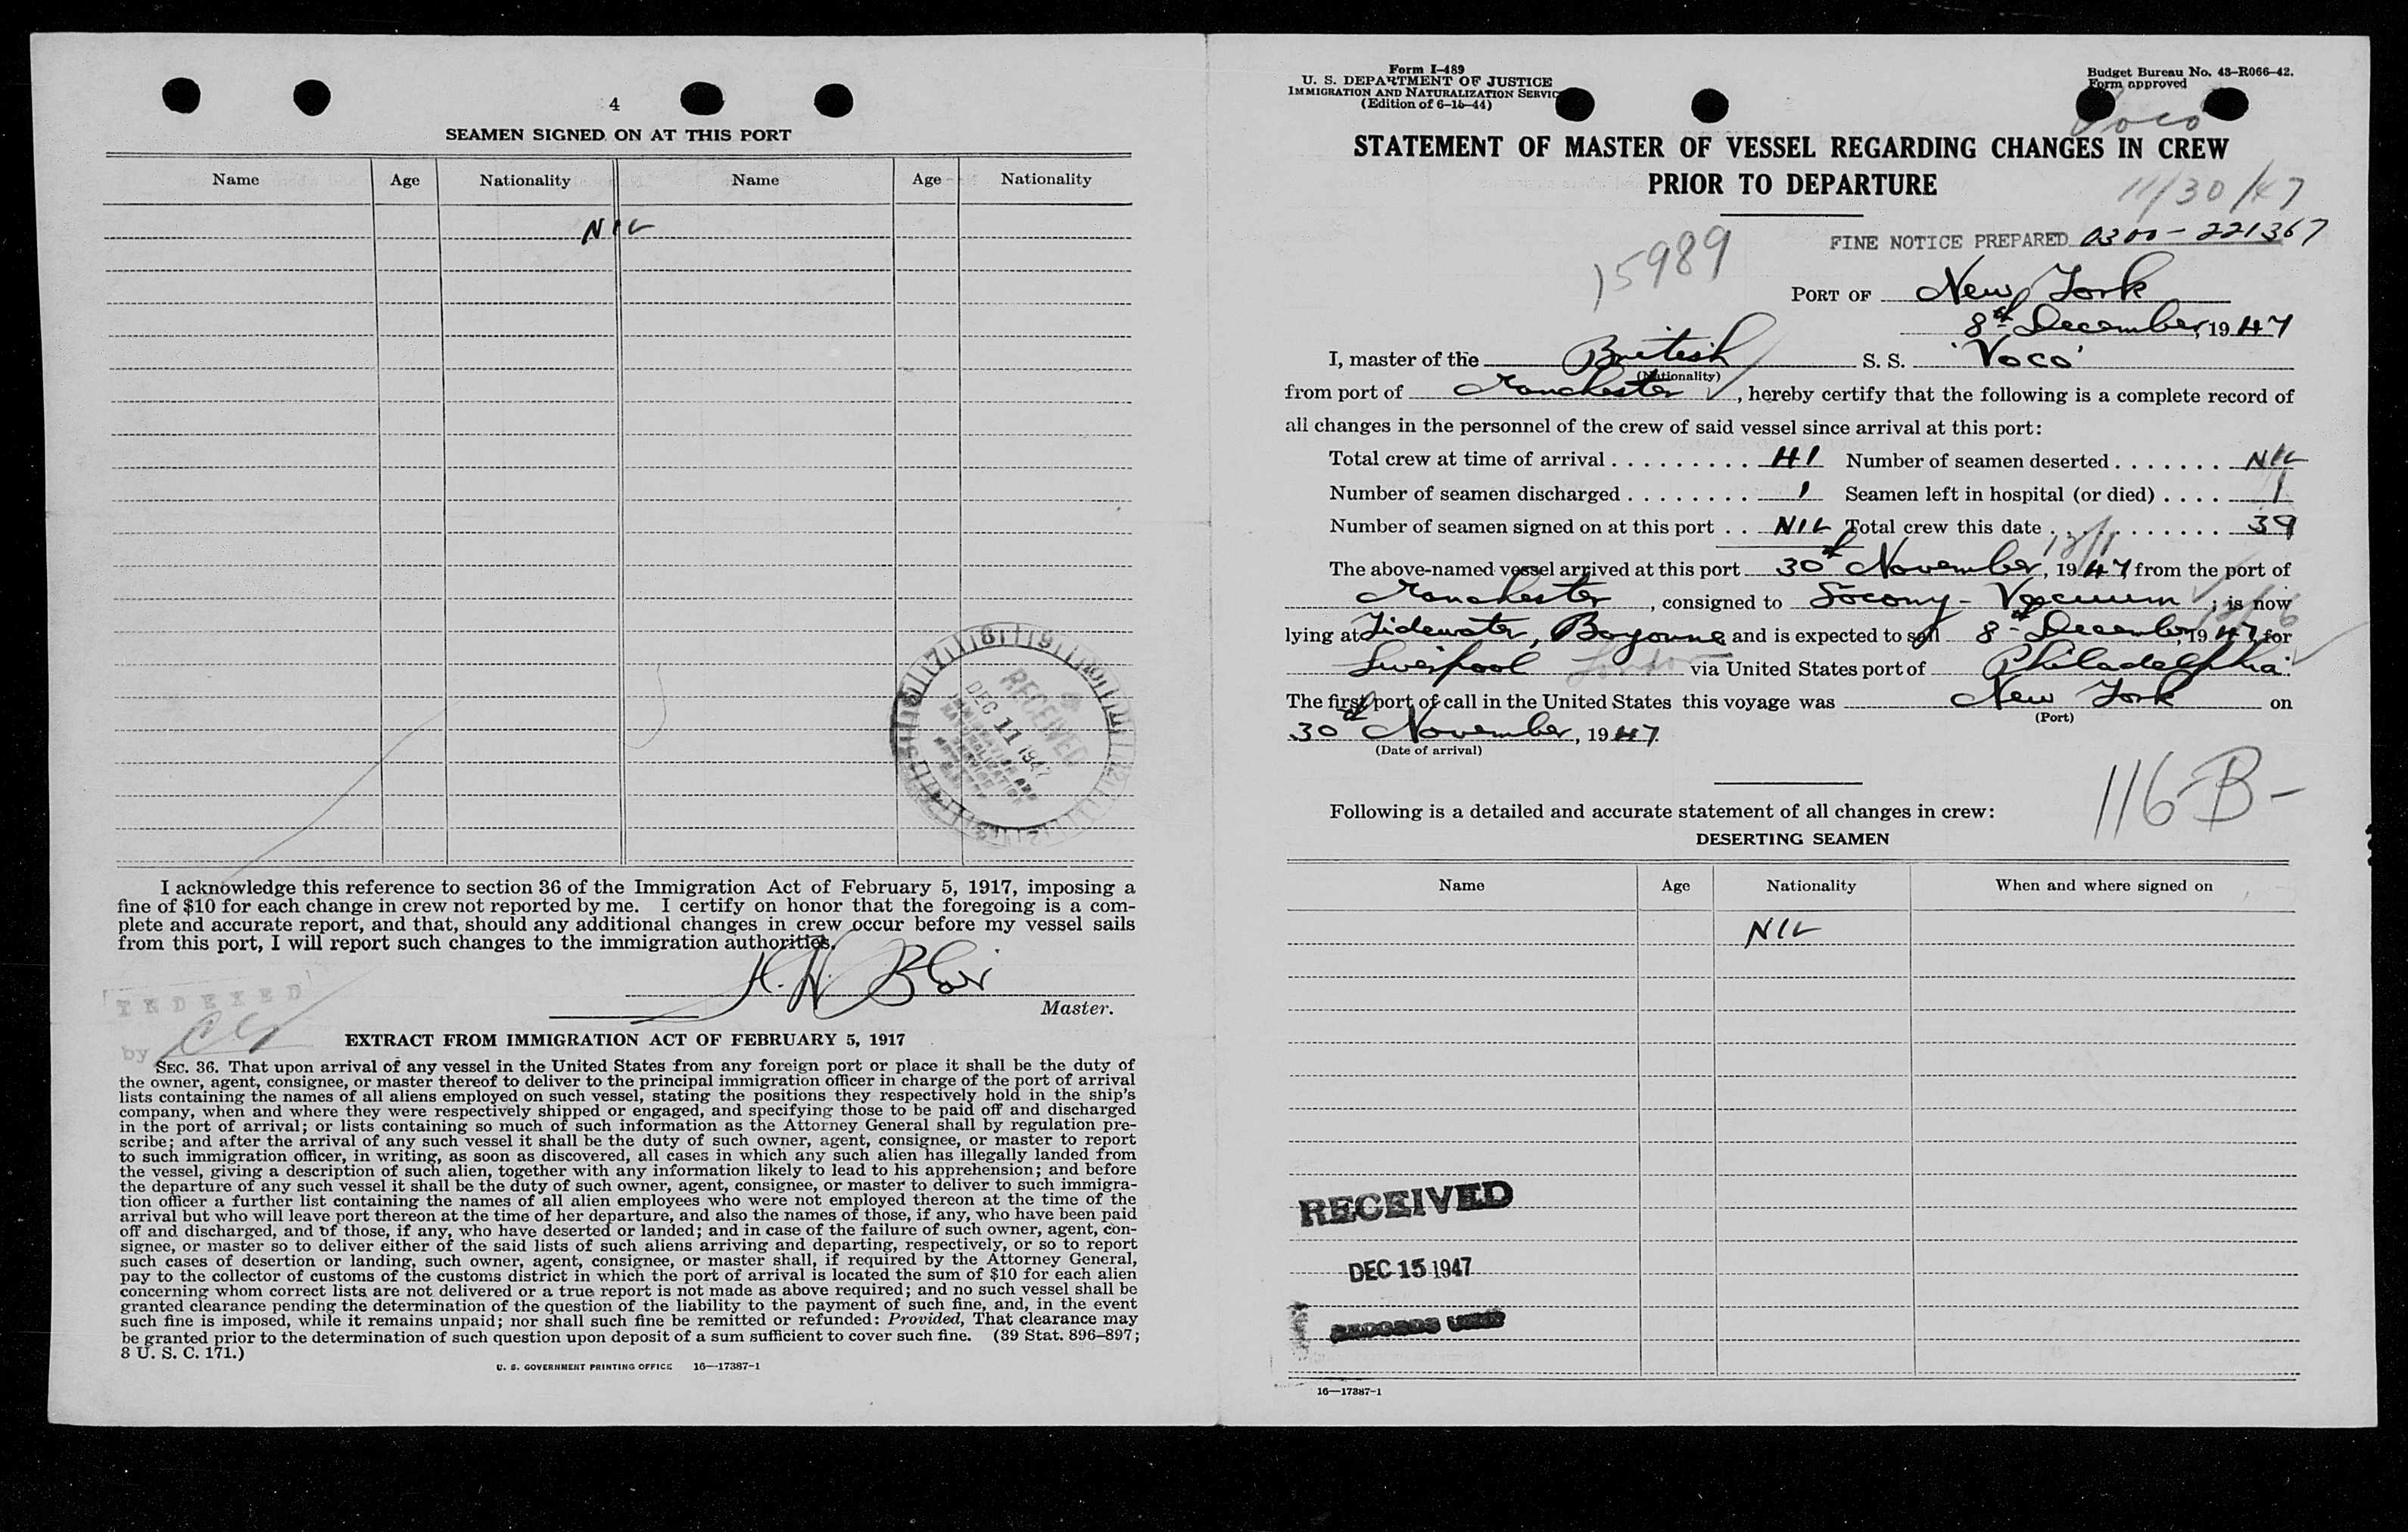 4
SEAMEN SIGNED ON AT THIS PORT
Name Age Nationality Name Age Nationality
NIL
RECEIVED
DEC 11 1947
IMMIGRATION AND
NATURALIZATION
SERVICE
I acknowledge this reference to section 36 of the Immigration Act of February 5, 1917, imposing a
fine of $10 for each change in crew not reported by me. I certify on honor that the foregoing is a com-
plete and accurate report, and that, should any additional changes in crew occur before my vessel sails
from this port, I will report such changes to the immigration authorities.
Master.
INDEXED
by
EXTRACT FROM IMMIGRATION ACT OF FEBRUARY 5, 1917
SEC. 36. That upon arrival of any vessel in the United States from any foreign port or place it shall be the duty of
the owner, agent, consignee, or master thereof to deliver to the principal immigration officer in charge of the port of arrival
lists containing the names of all aliens employed on such vessel, stating the positions they respectively hold in the ship's
company, when and where they were respectively shipped or engaged, and specifying those to be paid off and discharged
in the port of arrival; or lists containing so much of such information as the Attorney General shall by regulation pre-
scribe; and after the arrival of any such vessel it shall be the duty of such owner, agent, consignee, or master to report
to such immigration officer, in writing, as soon as discovered, all cases in which any such alien has illegally landed from
the vessel, giving a description of such alien, together with any information likely to lead to his apprehension; and before
the departure of any such vessel it shall be the duty of such owner, agent, consignee, or master to deliver to such immigra-
tion officer a further list containing the names of all alien employees who were not employed thereon at the time of the
arrival but who will leave port thereon at the time of her departure, and also the names of those, if any, who have been paid
off and discharged, and of those, if any, who have deserted or landed; and in case of the failure of such owner, agent, con-
signee, or master so to deliver either of the said lists of such aliens arriving and departing, respectively, or so to report
such cases of desertion or landing, such owner, agent, consignee, or master shall, if required by the Attorney General,
pay to the collector of customs of the customs district in which the port of arrival is located the sum of $10 for each alien
concerning whom correct lists are not delivered or a true report is not made as above required; and no such vessel shall be
granted clearance pending the determination of the question of the liability to the payment of such fine, and, in the event
such fine is imposed, while it remains unpaid; nor shall such fine be remitted or refunded: Provided, That clearance may
be granted prior to the determination of such question upon deposit of a sum sufficient to cover such fine. (39 Stat. 896–897;
8 U. S. C. 171.)
U. S. GOVERNMENT PRINTING OFFICE 16—17387-1
Form I-489
U. S. DEPARTMENT OF JUSTICE
IMMIGRATION AND NATURALIZATION SERVIC
(Edition of 6-15-44)
Budget Bureau No. 43-R066-42.
Form approved
Voco
STATEMENT OF MASTER OF VESSEL REGARDING CHANGES IN CREW
PRIOR TO DEPARTURE
11/30/47
15989
FINE NOTICE PREPARED 0300-221367
PORT OF New York
8th December, 1947
I, master of the British S. S. 'Voco'
(Nationality)
from port of Manchester, hereby certify that the following is a complete record of
all changes in the personnel of the crew of said vessel since arrival at this port:
Total crew at time of arrival . . . . . . . . . . 41 Number of seamen deserted . . . . . . . NIL
Number of seamen discharged . . . . . . . . 1 Seamen left in hospital (or died) . . . . 1
Number of seamen signed on at this port . . NIL Total crew this date . . . . . . . . . . . . 39
The above-named vessel arrived at this port 30th November, 1947, from the port of
Manchester, consigned to Socony-Vacuum; is now
lying at Tidewater, Bayonne and is expected to sail 8th December, 1947, for
Liverpool London via United States port of Philadelphia.
The first port of call in the United States this voyage was New York on
(Port)
30th November, 1947.
(Date of arrival)
116-B-
Following is a detailed and accurate statement of all changes in crew:
DESERTING SEAMEN
Name Age Nationality When and where signed on
NIL
RECEIVED
DEC 15 1947
RECORDS UNIT
16—17387-1